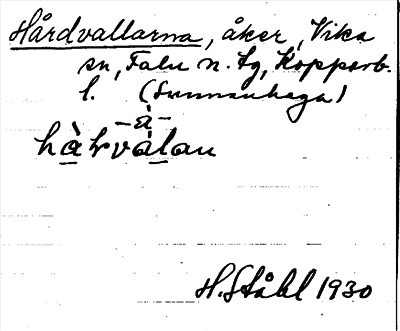 Hårdvallarna, åker, Vika
sn, Falu n. tg, Kopparb.
l. (Sunnanhaga)
-à-
hàrvalan
H. Ståhl 1930